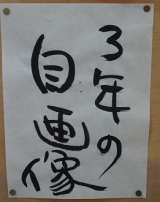 3年の
自画像